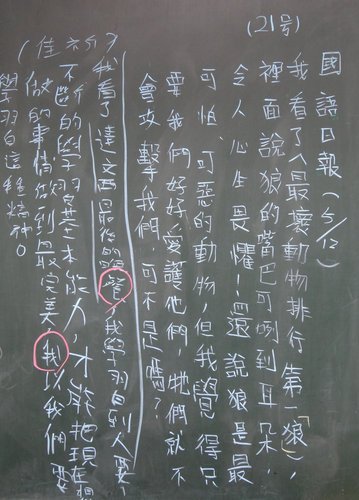 (21号)
國語日報(5/12)
我看了人最壞動物排行第一「狼」,
裡面說狼的嘴巴可咧到耳朵,
令人心生畏懼!還說狼是最
可怕、可惡的動物,但我覺得只
要我們好好愛護他們,牠們就不
會攻擊我們,可不是嗎?
(佳分)
我看了達文西最後的晚餐,我學習到人要
不斷的學習基本能力,才能把現在想
做的事情做到最完美,我以我們要
學習白這種精神。